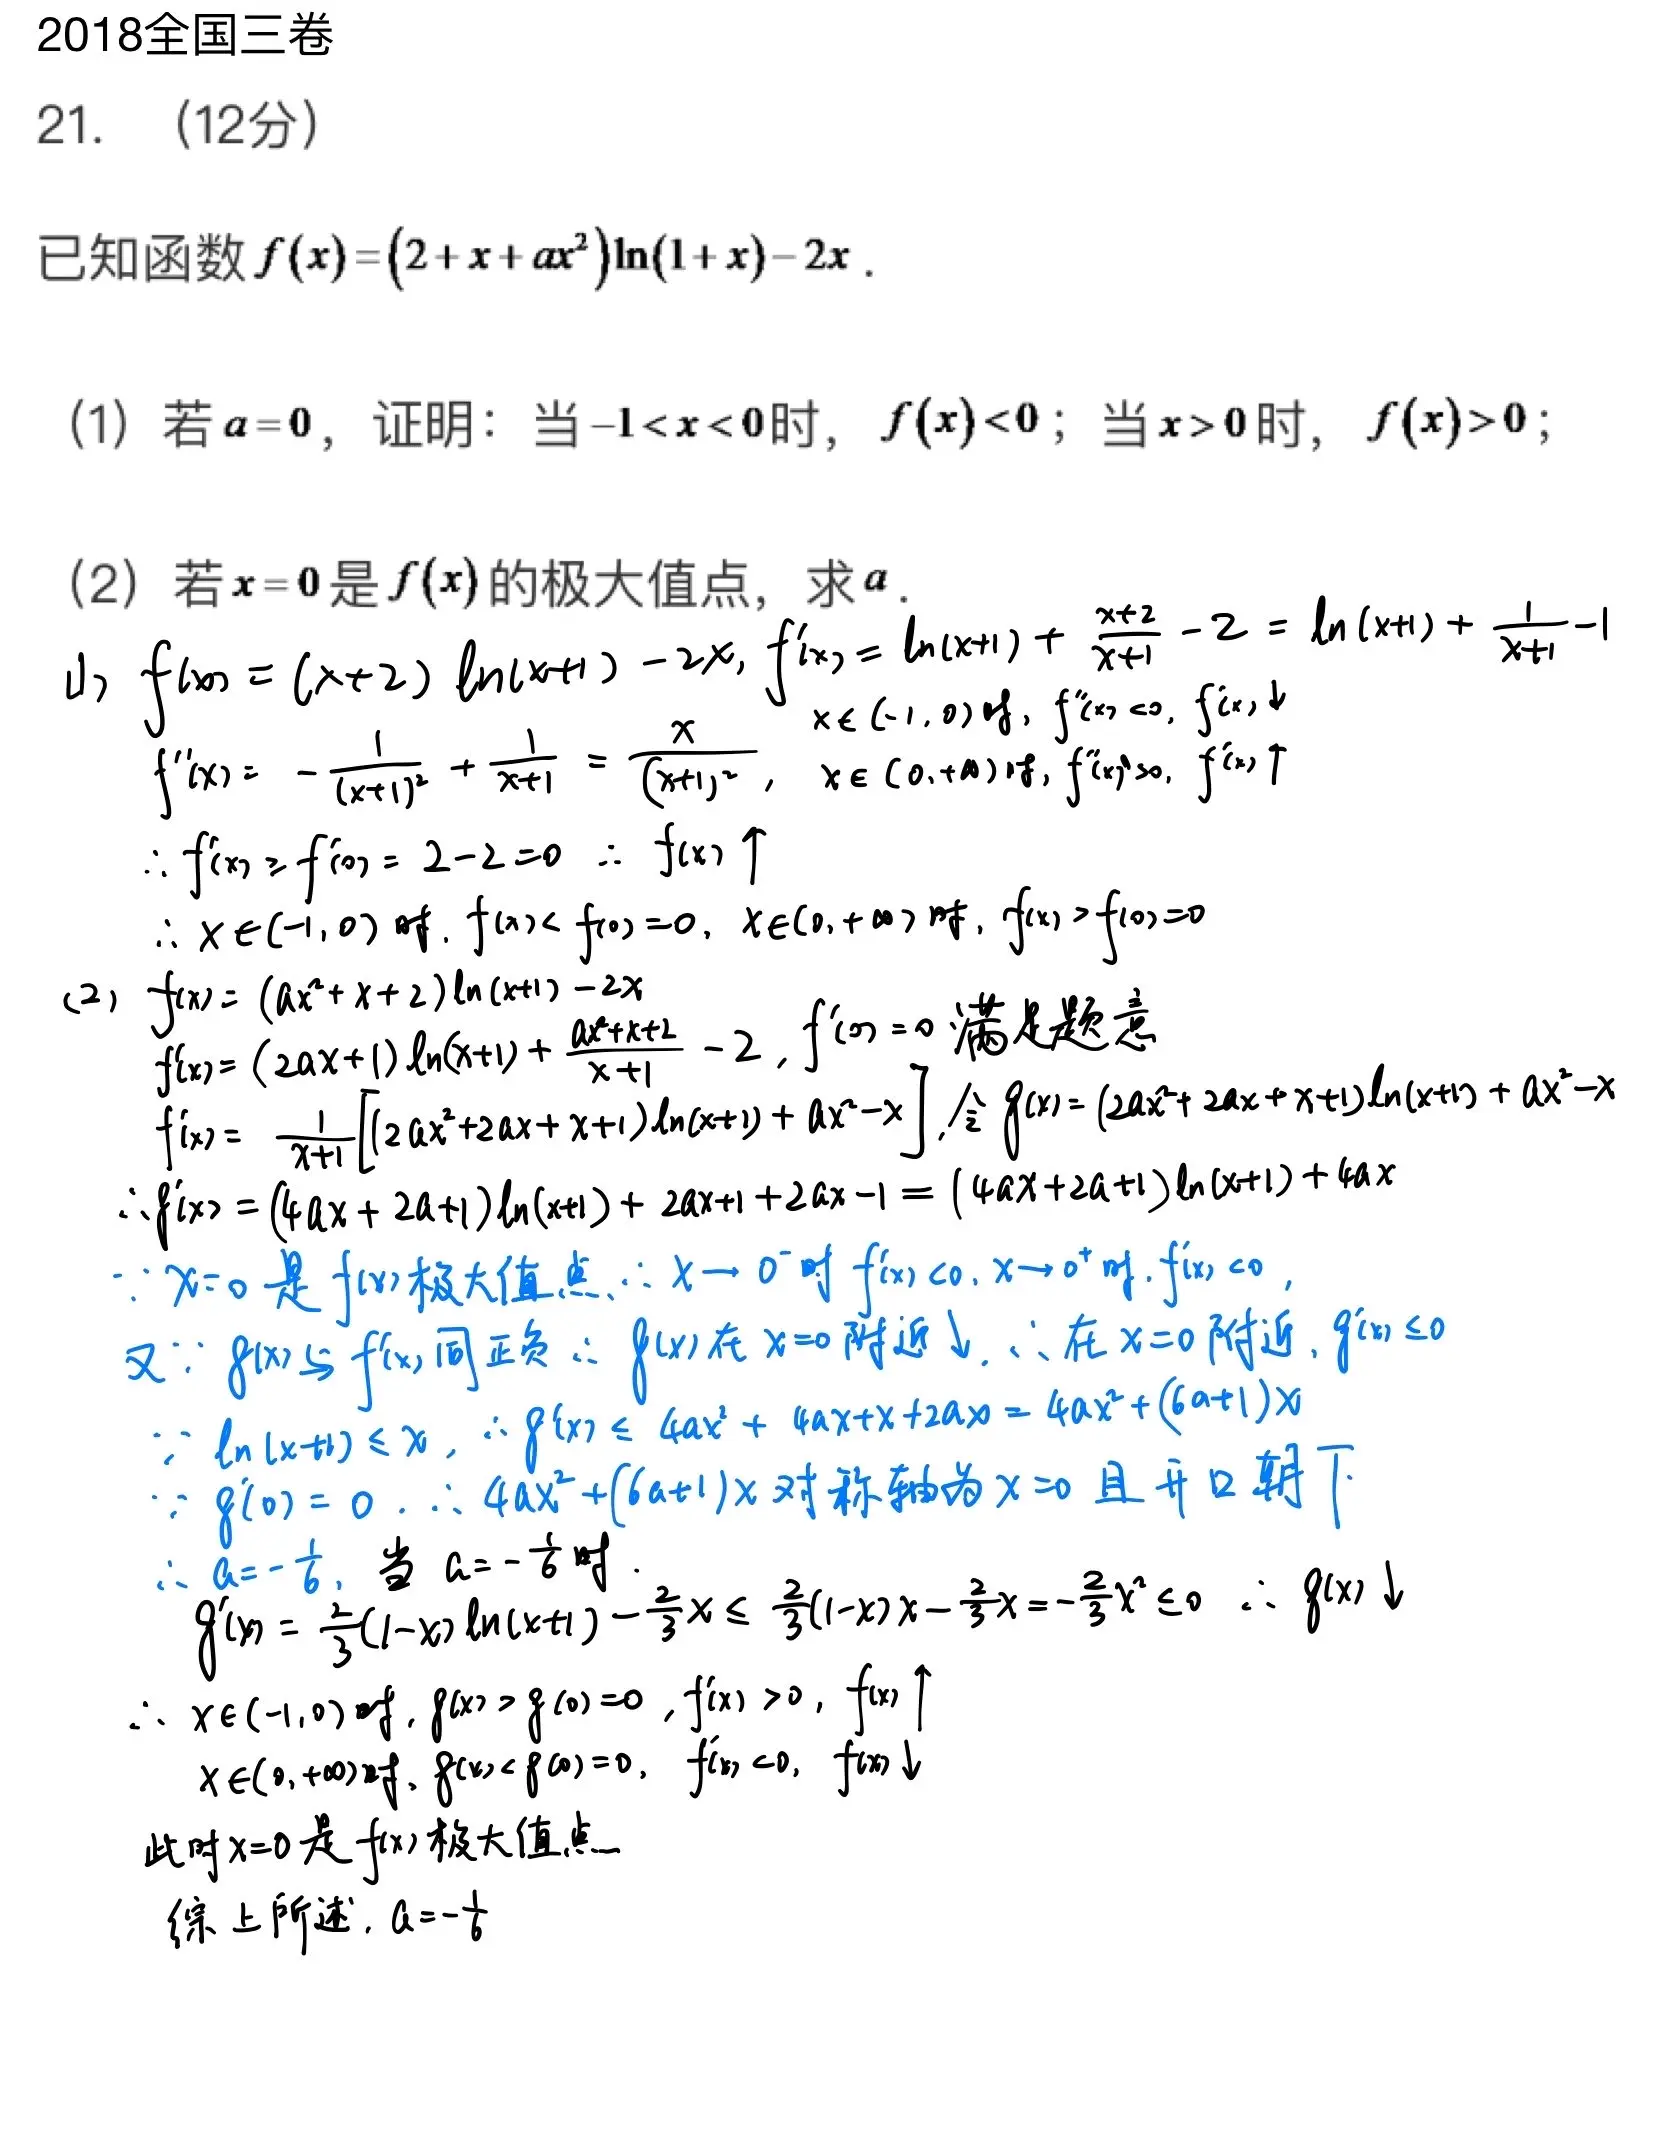 2018全国三卷
21. （12分）
已知函数 f(x)=(2+x+ax²)ln(1+x)-2x .
（1）若 a=0，证明：当 -1<x<0 时，f(x)<0；当 x>0 时，f(x)>0；
（2）若 x=0 是 f(x) 的极大值点，求 a .
(1) f(x) = (x+2) ln(x+1) -2x, f'(x) = ln(x+1) + (x+2)/(x+1) - 2 = ln(x+1) + 1/(x+1) -1
f''(x) = - 1/(x+1)² + 1/(x+1) = x/(x+1)², x∈(-1,0)时, f''(x)<0, f'(x)↓
x∈(0,+∞)时, f''(x)>0, f'(x)↑
∴ f'(x) ≥ f'(0) = 2-2=0 ∴ f(x)↑
∴ x∈(-1,0)时, f(x)< f(0)=0, x∈(0,+∞)时, f(x)>f(0)=0
(2) f(x) = (ax²+x+2)ln(x+1) -2x
f'(x) = (2ax+1)ln(x+1) + (ax²+x+2)/(x+1) -2, f'(0)=0 满足题意
f'(x) = 1/(x+1) [(2ax²+2ax+x+1)ln(x+1) + ax²-x], 令 g(x) = (2ax²+2ax+x+1)ln(x+1) + ax²-x
∴ g'(x) = (4ax+2a+1)ln(x+1) + 2ax+1+2ax-1 = (4ax+2a+1)ln(x+1)+4ax
∵ x=0 是 f(x)极大值点 ∴ x→0⁻时 f'(x)<0, x→0⁺时, f'(x)<0,
又∵ g(x)与f'(x)同正负 ∴ g(x)在 x=0附近↓, ∴在 x=0附近, g'(x)≤0
∵ ln(x+1) ≤ x, ∴ g'(x) ≤ 4ax² + 4ax+x+2ax = 4ax²+(6a+1)x
∵ g'(0) = 0, ∴ 4ax²+(6a+1)x 对称轴为 x=0 且开口朝下
∴ a=-1/6, 当 a=-1/6 时.
g'(x) = 2/3(1-x)ln(x+1) - 2/3x ≤ 2/3(1-x)x - 2/3x = -2/3x² ≤0 ∴ g(x)↓
∴ x∈(-1,0)时, g(x)>g(0)=0, f'(x)>0, f(x)↑
x∈(0,+∞)时, g(x)<g(0)=0, f'(x)<0, f(x)↓
此时x=0是f(x)极大值点
综上所述, a=-1/6